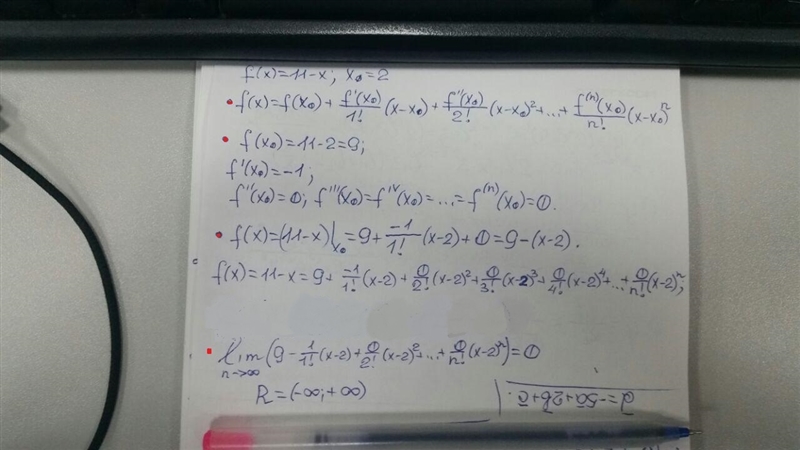 f(x)=11-x; x₀=2
• f(x)=f(x₀)+f'(x₀)/1! (x-x₀)+f''(x₀)/2! (x-x₀)²+...+f⁽ⁿ⁾(x₀)/n! (x-x₀)ⁿ
• f(x₀)=11-2=9;
f'(x₀)=-1;
f''(x₀)=0; f'''(x₀)=f^IV(x₀)=...=f⁽ⁿ⁾(x₀)=0.
• f(x)=(11-x)|x₀=9+-1/1! (x-2)+0=9-(x-2).
f(x)=11-x=9+-1/1! (x-2)+0/2! (x-2)²+0/3! (x-2)³+0/4! (x-2)⁴+...+0/n! (x-2)ⁿ;
• lim n→∞ (9-1/1! (x-2)+0/2! (x-2)²+...+0/n! (x-2)ⁿ)=0
R=(-∞;+∞)
d̄=-5ā+2b̄+c̄.